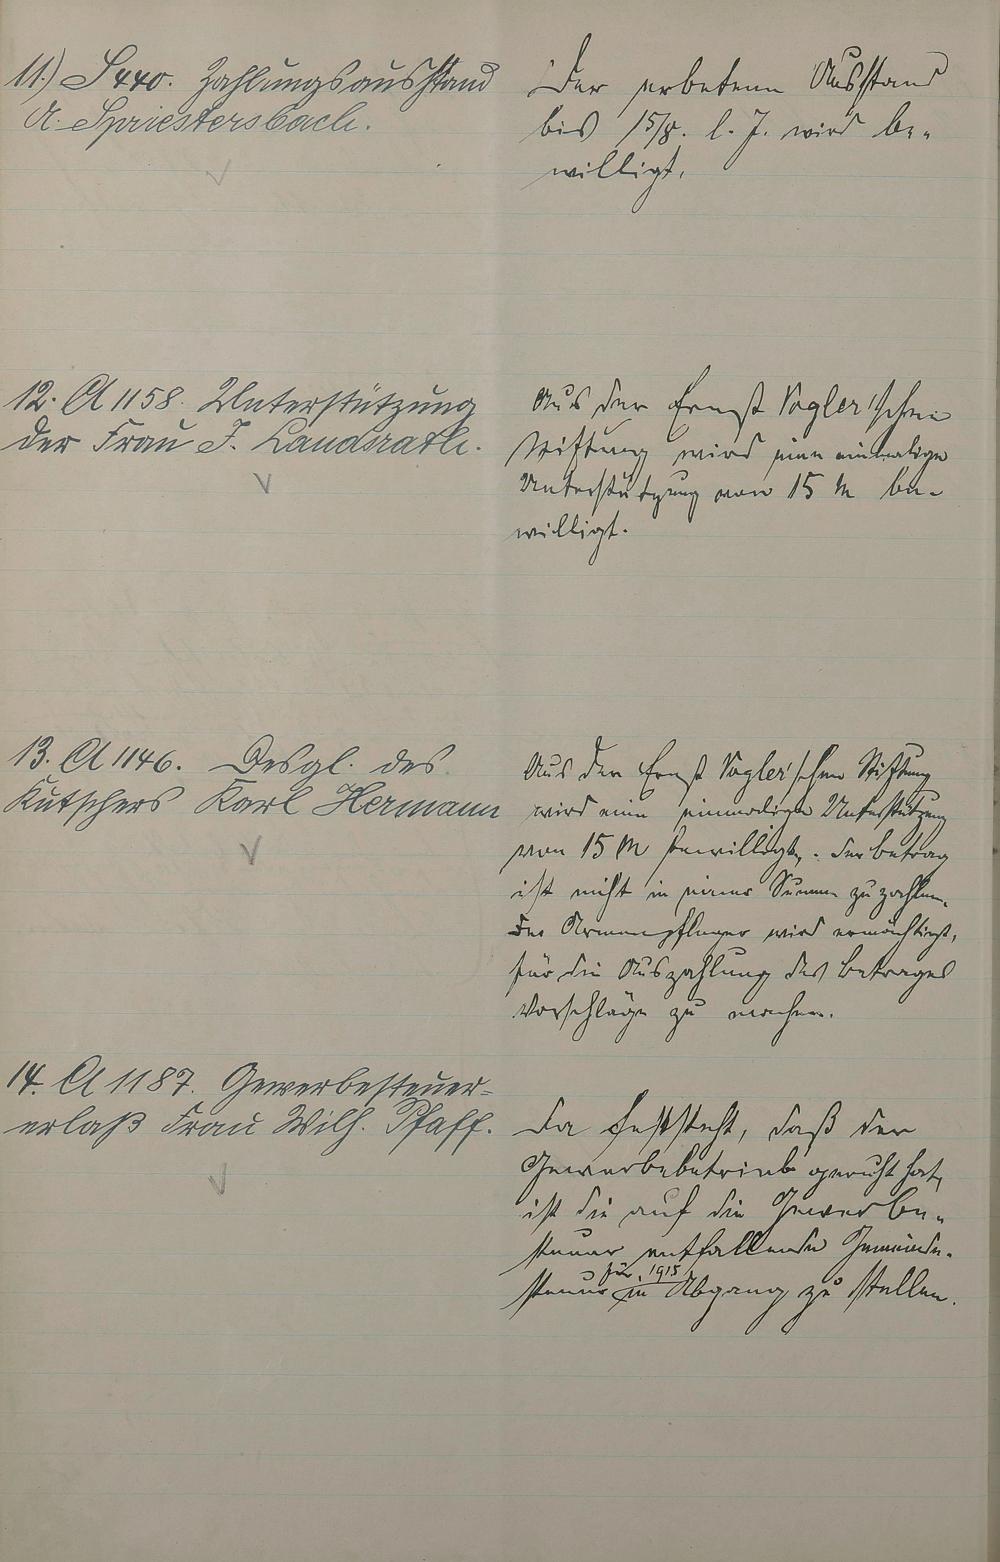 11.) S 440. Zahlungsausstand
A. Spriestersbach.
Der erbetene Ausstand
bis 15/8. l. J. wird be-
willigt.
12. A 1158. Unterstützung
der Frau J. Landsrath.
Aus der Ernst Vogler'schen
Stiftung wird eine einmalige
Unterstützung von 15 M be-
willigt.
13. A 1146. Desgl. des
Kutschers Karl Hermann
Aus der Ernst Vogler'schen Stiftung
wird eine einmalige Unterstützung
von 15 M bewilligt. Der Betrag
ist nicht in einer Summe zu zahlen.
Der Armenpfleger wird ermächtigt,
für die Auszahlung des Betrages
Vorschläge zu machen.
14. A 1187. Gewerbesteuer-
erlaß Frau Wilh. Pfaff.
Da feststeht, daß der
Gewerbebetrieb geruht hat,
ist die auf die Gewerbe-
steuer entfallende Gemeinde-
steuer für 1915 in Abgang zu stellen.